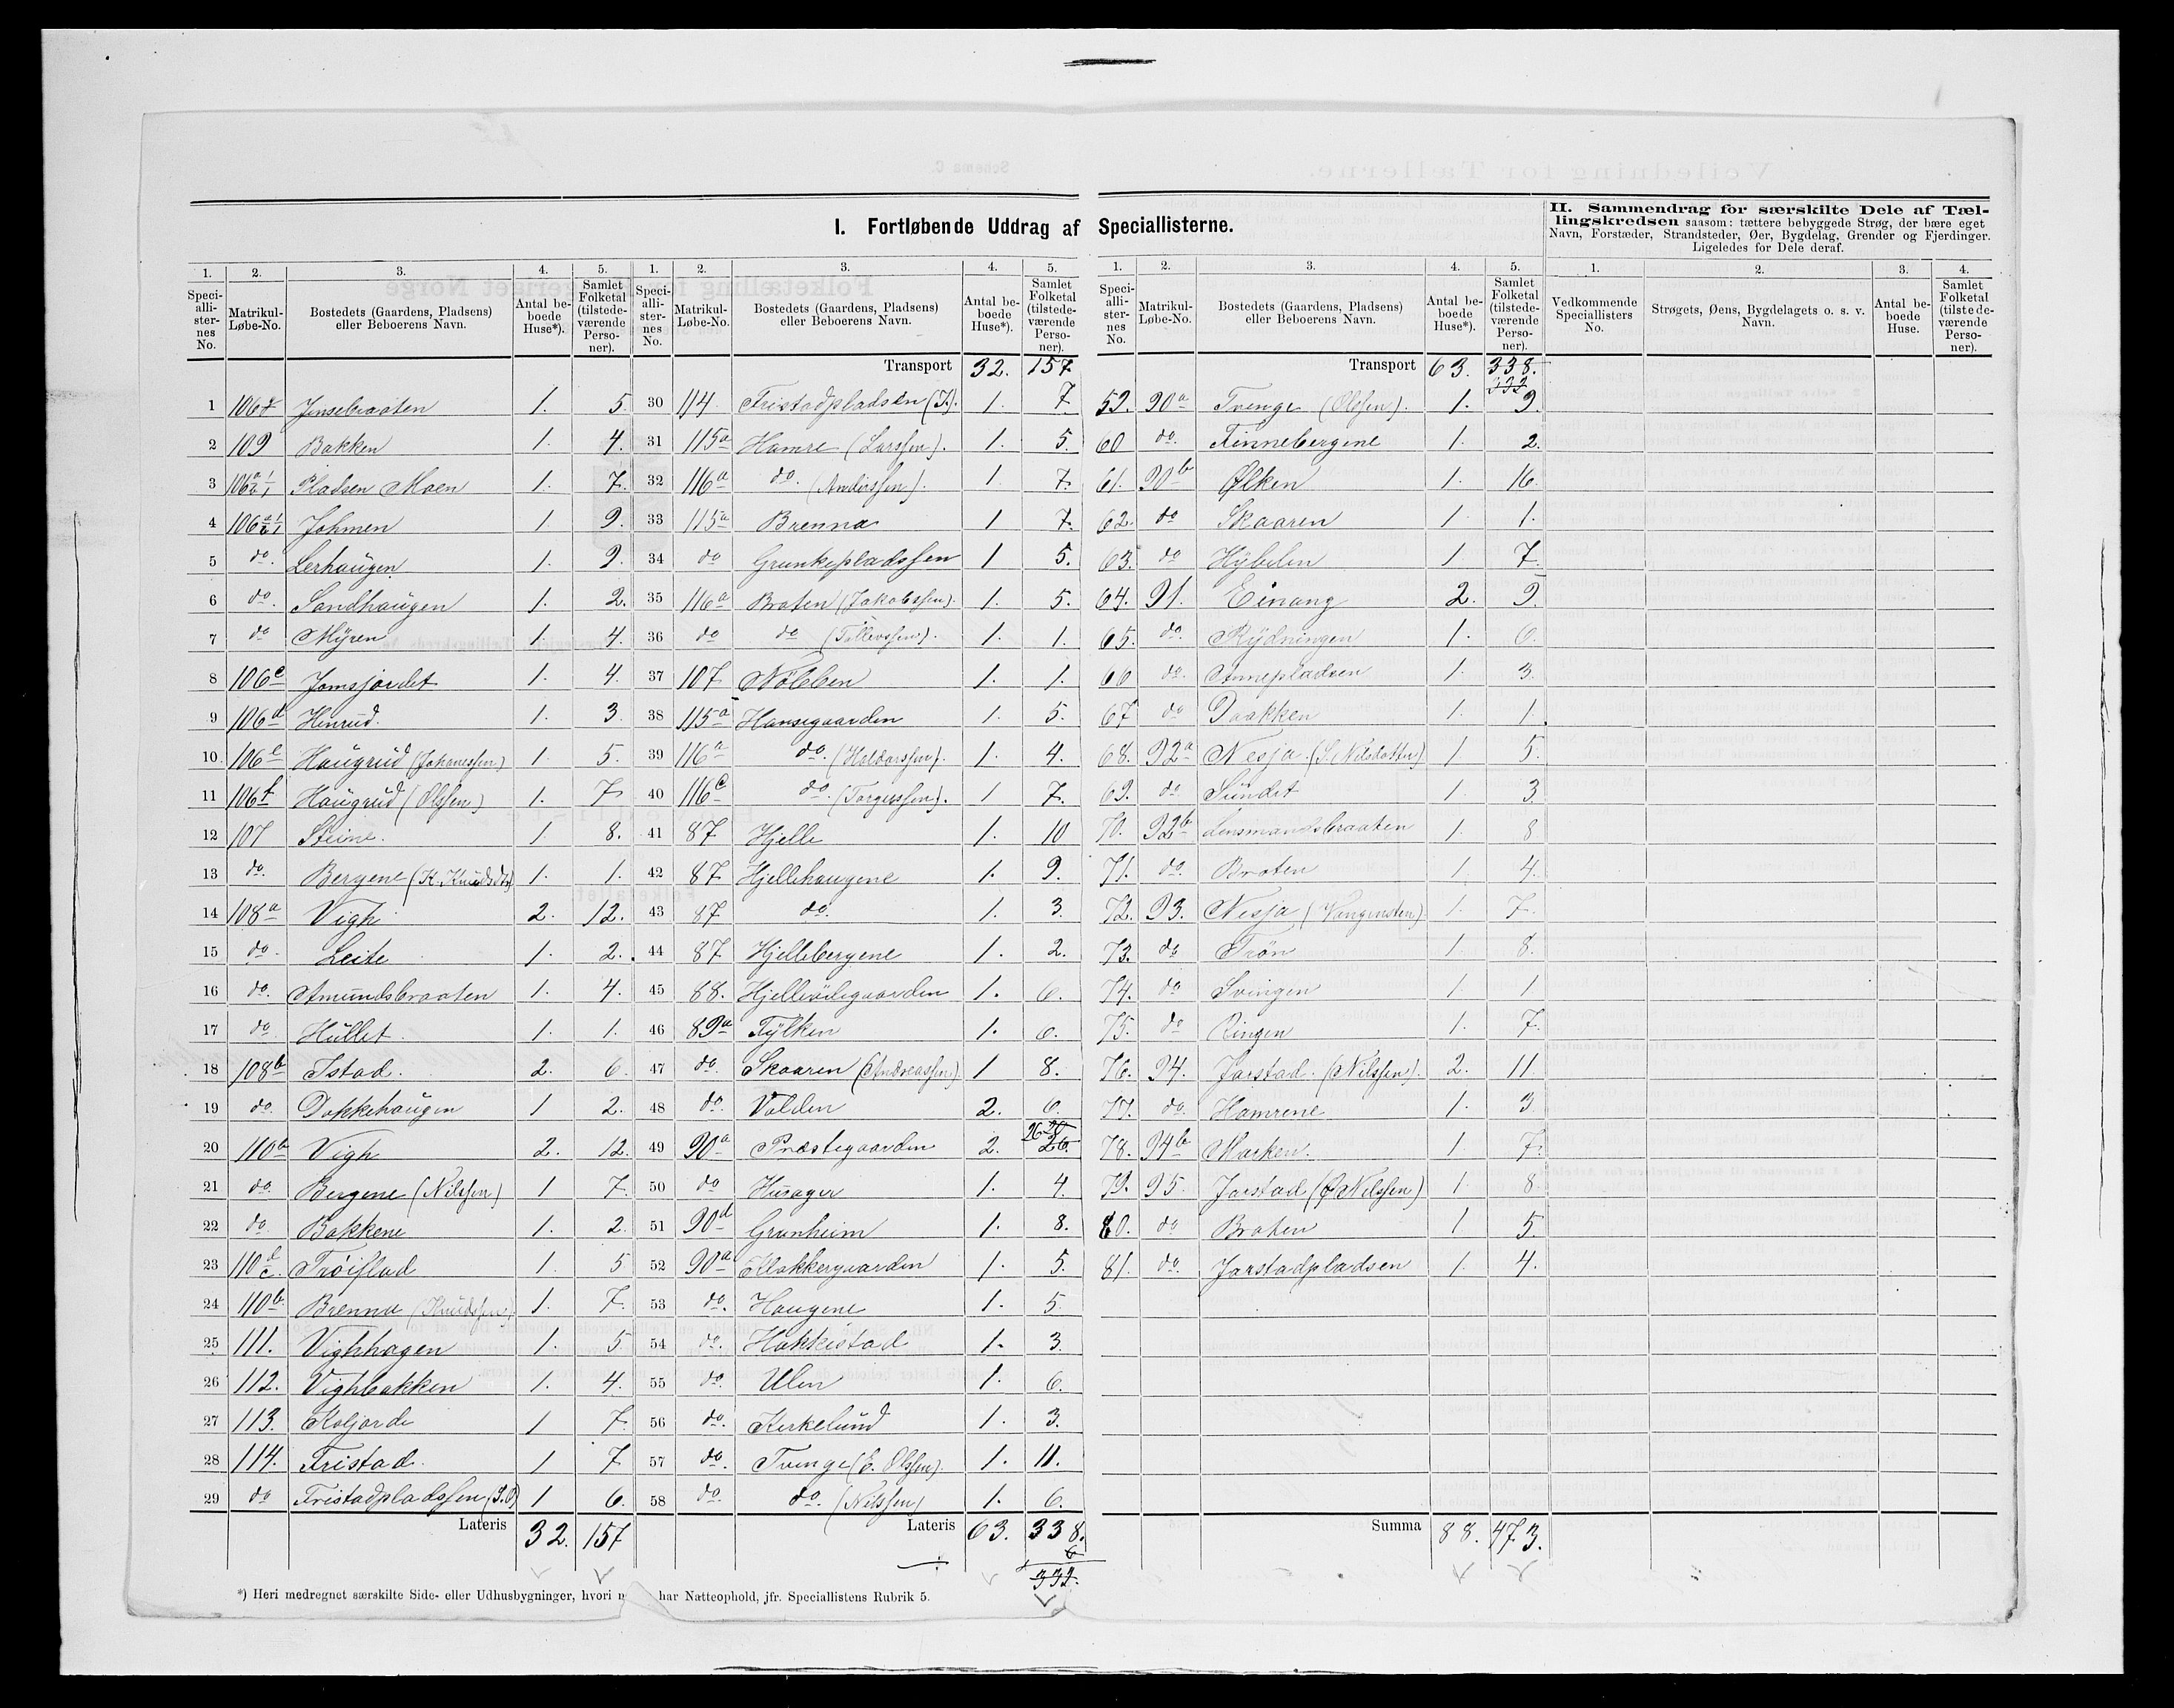 I. Fortløbende Uddrag af Speciallisterne.
II. Sammendrag for særskilte Dele af Tæl-
lingskredsen saasom: tættere bebyggede Strøg, der bære eget
Navn, Forstæder, Strandsteder, Øer, Bygdelag, Grender og Fjerdinger.
Ligeledes for Dele deraf.
1. 2. 3. 4. 5.
Speciallisternes No. Matrikul-Løbe-No. Bostedets (Gaardens, Pladsens) eller Beboerens Navn. Antal beboede Huse*). Samlet Folketal (tilstedeværende Personer).
1 JenSebraaten 1. 5.
2 109 Bakken 1. 4.
3 Pladsen Moen 1. 7.
4 Johmen 1 9.
5 do. Lerhaugen 1. 9.
6 do. Sandhaugen 1. 2.
7 do Myren 1. 4.
8 106c Jomsjordet 1. 4.
9 106d Henrud. 1. 3.
10 106e Haugrud (Johanessen) 1. 5.
11 106f Haugrud (Olssen) 1. 7.
12 107 Steine. 1 8.
13 do. Bergene (K. Knudsdtr) 1. 1.
14 108a Vigh 2. 12.
15 do. Leite 1. 2.
16 do. Amundsbraaten 1. 4.
17 do Hullet 1. 1.
18 108b Istad. 2. 6.
19 do. Dokkehaugen 1 2.
20 110b Vigh 2. 12.
21 do. Bergene (Nilssen) 1 7.
22 do. Bakkene 1. 2.
23 Trøistad 1. 5
24 110b Brenna (Knudssen) 1. 7.
25 111. Vighhagen 1. 5
26 112. Vighbakken 1. 4.
27 113. Koljorde 1 7.
28 114. Fristad. 1 7
29 do Fristadpladssen 1 6.
Lateris 32. 157
1. 2. 3. 4. 5.
Speciallisternes No. Matrikul-Løbe-No. Bostedets (Gaardens, Pladsens) eller Beboerens Navn. Antal beboede Huse*). Samlet Folketal (tilstedeværende Personer).
Transport 32. 157
30 114. Fristadpladsen 1. 7.
31 115a Hamre (Larssen). 1. 5.
32 116a do. (Anderssen). 1. 7.
33 115a Brenna 1 7.
34 do Grunkepladssen 1 5.
35 116a Braten (Jakobssen). 1. 5.
36 do do (Tollevssen). 1. 1.
37 107 Nobben 1. 1.
38 115a Hansegaarden 1. 5.
39 116a do. (Haldorssen). 1. 4.
40 116c do. (Torgerssen). 1 7.
41 87 Hjelle 1. 10
42 87 Hjellehaugene 1. 9.
43 87 do. 1. 3.
44 87 Hjellebergene 1. 2.
45 88. 1. 6.
46 89a Tylken 1. 6.
47 do. Skaaren (Andreassen) 1 8.
48 do. Volden 2. 6.
49 90a Præstegaarden 2. 26 20 26.
50 do Husager 1. 4.
51 90d Grønheim 1. 8.
52 90a Klokkergaarden 1. 5.
53 do. Haugene 1. 5.
54 do. Hakkeistad 1. 3.
55 do. Ulen 1. 6.
56 do. Kirkelund 1. 3.
57 do. Tvenge (E. Olssen). 1. 11.
58 do. do. (Nilssen) 1. 6.
Lateris 63. 338.
6
332.
1. 2. 3. 4. 5.
Speciallisternes No. Matrikul-Løbe-No. Bostedets (Gaardens, Pladsens) eller Beboerens Navn. Antal beboede Huse*). Samlet Folketal (tilstedeværende Personer).
Transport 63. 338.
332
59. 90a Tvenge (Olssen). 1. 9.
60 do. Finnebergene 1. 2.
61. 90b Ølken 1. 16.
62. do Skaaren 1 1.
63. do Hybelen 1 7.
64. 91. Einang 2. 9.
65. do. Rydningen 1. 6.
66 do. Annepladsen 1. 3.
67 do Daakken 1. 1.
68. 92a Nesja (S. Nilsdatter) 1. 5.
69. do Sundet 1 3.
70. 92b Lensmandsbraaten 1. 8
71. do. Broten 1. 4.
72. 93. Nesja (Vangensten) 1. 7.
73. do Trøn 1 8.
74. do Svingen 1. 1
75. do Ringen 1. 7.
76. 94. Jarstad. (Nilssen). 2. 11
77. do. Hamrene 1. 3
78. 94b Marken. 1. 7.
79. 95. Jarstad (O Nilssen) 1. 8.
80. do Braten 1 5.
81. do. Jarstadpladsen 1. 4.
Summa 88. 473.
1. 2. 3. 4.
Vedkommende Speciallisters No. Strøgets, Øens, Bygdelagets o. s. v. Navn. Antal beboede Huse. Samlet Folketal (tilstedeværende Personer).
*) Heri medregnet særskilte Side- eller Udhusbygninger, hvori har Natteophold, jfr. Speciallistens Rubrik 5.